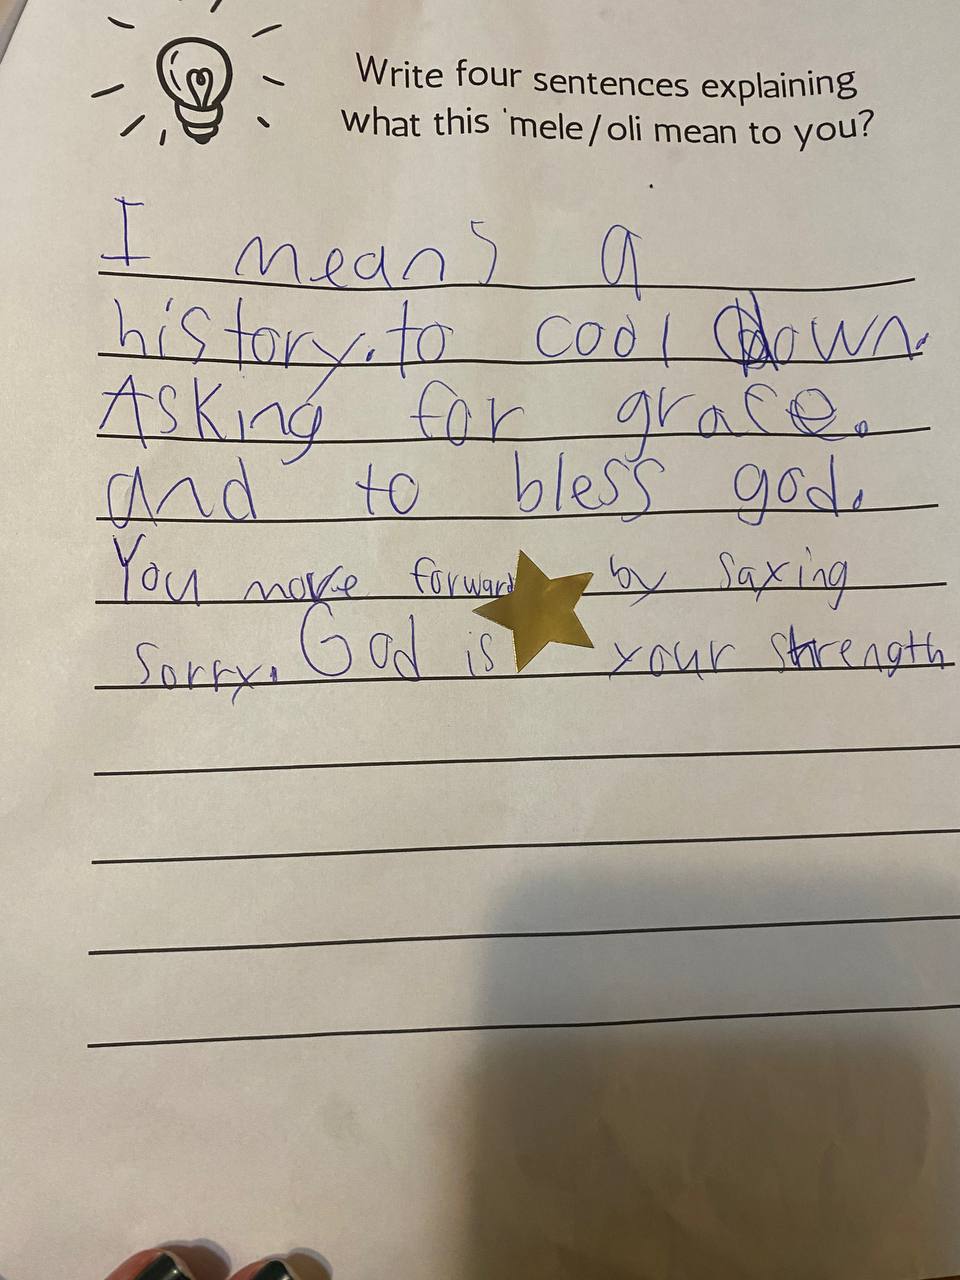 Write four sentences explaining
what this 'mele/oli mean to you?
I means a
history. to cool down.
Asking for grace.
and to bless god.
You move forward by saying
sorry. God is your strength